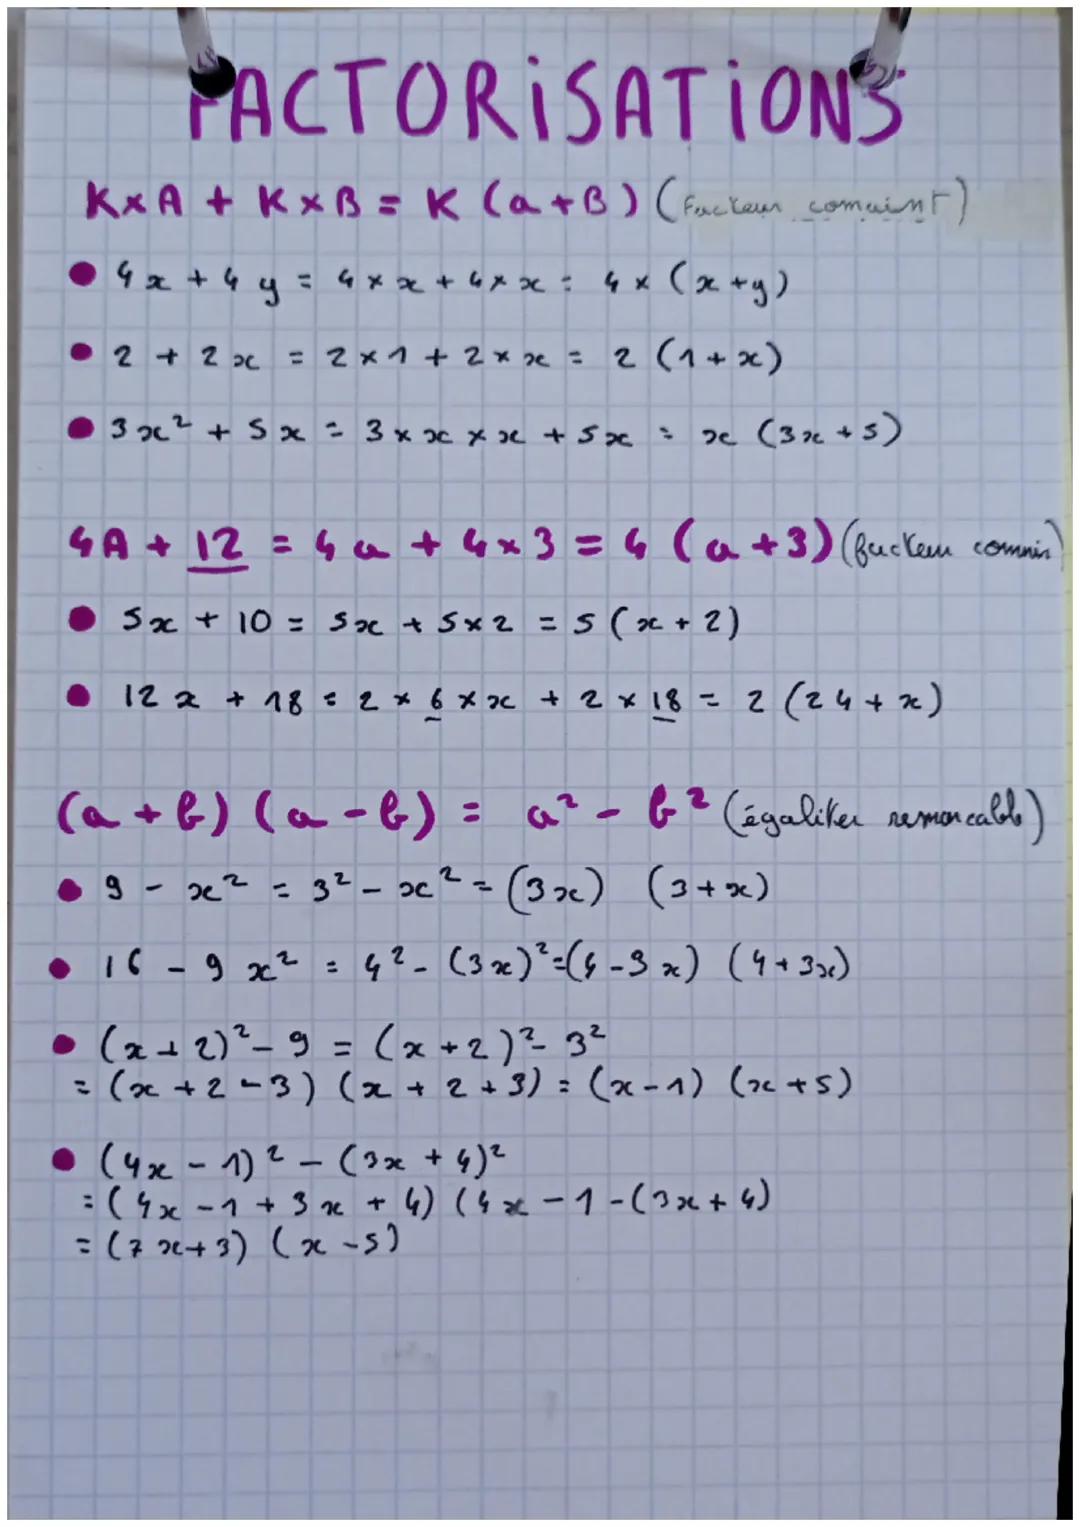 FACTORiSATiONS
K×A + K×B = K (a+B) (Facteur comuint)
4x + 4y = 4×x + 4×x = 4×(x+y)
2 + 2x = 2×1 + 2×x = 2 (1+x)
3x² + 5x = 3×x×x + 5x = x (3x+5)
4A + 12 = 4a + 4×3 = 4 (a+3) (facteur commin)
5x + 10 = 5x + 5×2 = 5 (x+2)
12x + 18 = 2×6×x + 2×18 = 2 (24+x)
(a+b) (a-b) = a² - b² (égaliter remarcable)
9 - x² = 3² - x² = (3x) (3+x)
16 - 9x² = 4² - (3x)² = (4-3x) (4+3x)
(x+2)² - 9 = (x+2)² - 3²
= (x+2-3) (x+2+3) = (x-1) (x+5)
(4x-1)² - (3x+4)²
= (4x-1+3x+4) (4x-1-(3x+4)
= (7x+3) (x-5)